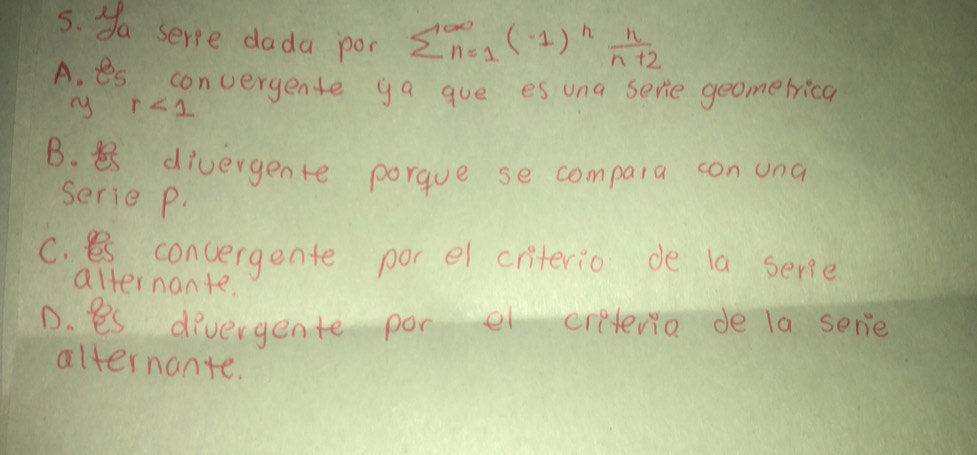 5. Ya serie dada por ∑_{n=1}^{∞} (-1)^n n/(n+2)
A. es convergente ya que es una serie geometrica
y r<1
B. es divergente porque se compara con una
serie p.
C. es convergente por el criterio de la serie
alternante.
D. es divergente por el criterio de la serie
alternante.